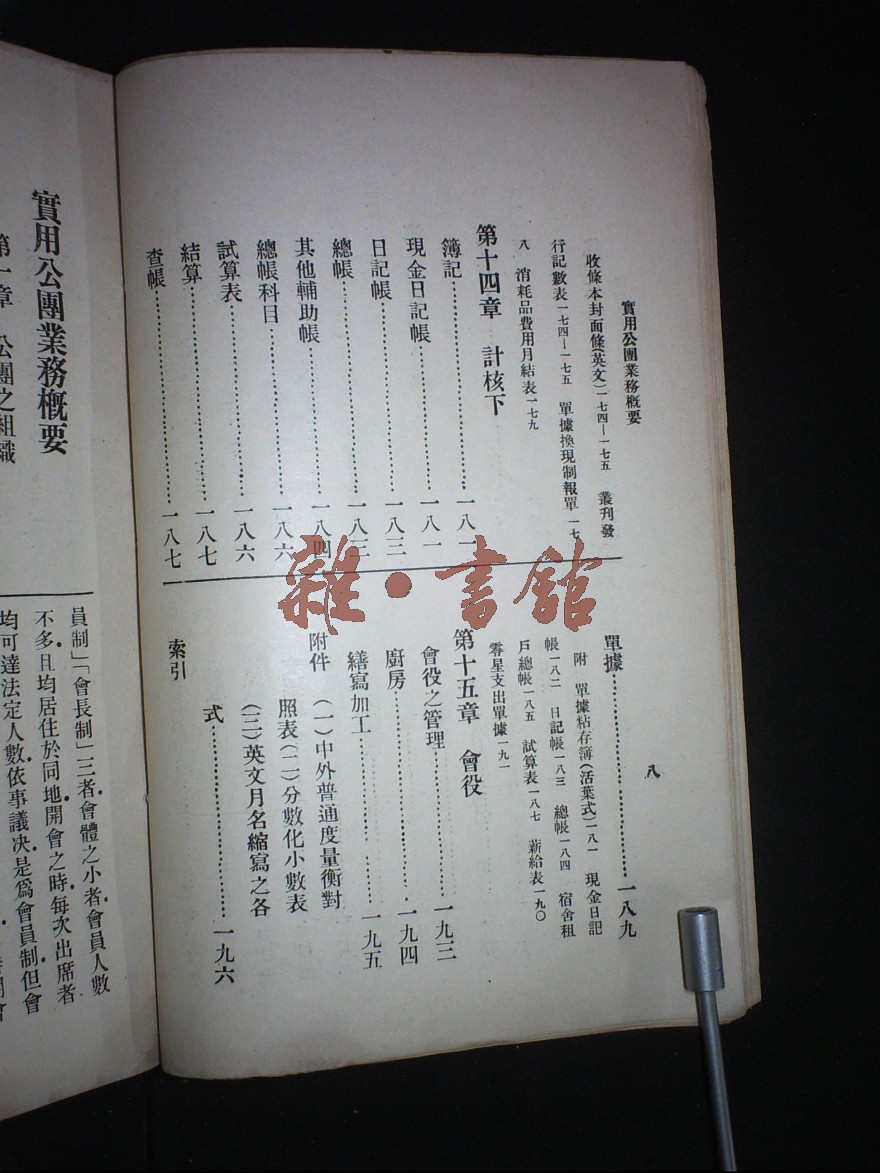 實用公團業務概要
八
收條本封面條(英文)一七四—一七五　叢刊發
行記數表一七四—一七五　單據換現制報單　一七
八　消耗品費用月結表一七九
第十四章　計核下
簿記……一八一
現金日記帳……一八一
日記帳……一八三
總帳……一八三
其他輔助帳……一八四
總帳科目……一八六
試算表……一八六
結算……一八七
查帳……一八七
單據……一八九
附　單據粘存簿(活葉式)一八一　現金日記
帳一八二　日記帳一八三　總帳一八四　宿舍租
戶總帳一八五　試算表一八七　薪給表一九〇
零星支出單據一九一
第十五章　會役
會役之管理……一九三
廚房……一九四
繕寫加工……一九五
附件　(一)中外普通度量衡對
照表(二)分數化小數表
(三)英文月名縮寫之各
式……一九六
索引
雜·書館
實用公團業務概要
第一章　公團之組織
員制」「會長制」三者會體之小者會員人數
不多且均居住於同地開會之時每次出席者
均可達法定人數依事議決是爲會員制但會